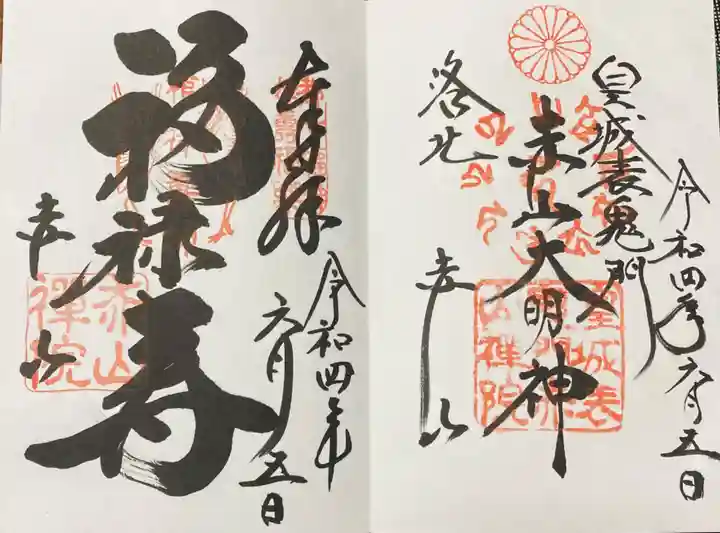 皇城表鬼門
令和四年六月五日
赤山大明神
洛北
赤山
皇城表
禅院
奉拝
令和四年
六月五日
福禄寿
赤山
赤山
禅院